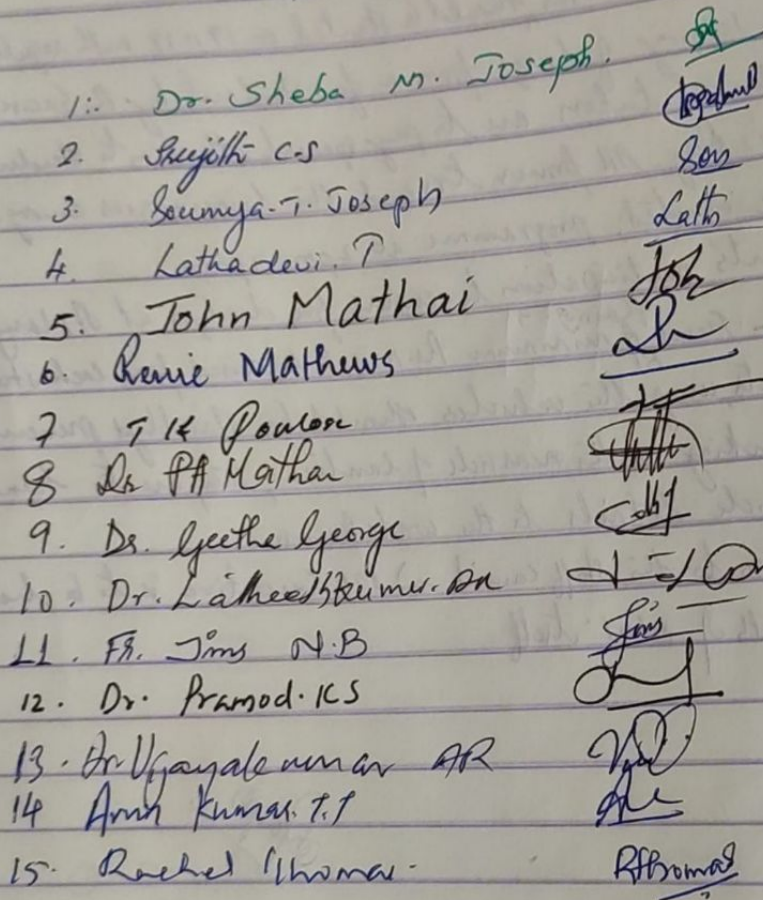 1:- Dr. Sheba M. Joseph.
2. Sreejith C.S
3. Soumya. T. Joseph Sou
4. Lathadevi. P Latha
5. John Mathai Joh
6. Renie Mathews
7 T K Poulose
8 Dr PA Mathai
9. Dr. Geetha George
10. Dr.
11. Fr. Jins N.B Jins
12. Dr. Pramod. K S
13. Dr. Vijayakumar AR
14 Arun Kumar. T.T
15. Rachel Thomas. RThomas